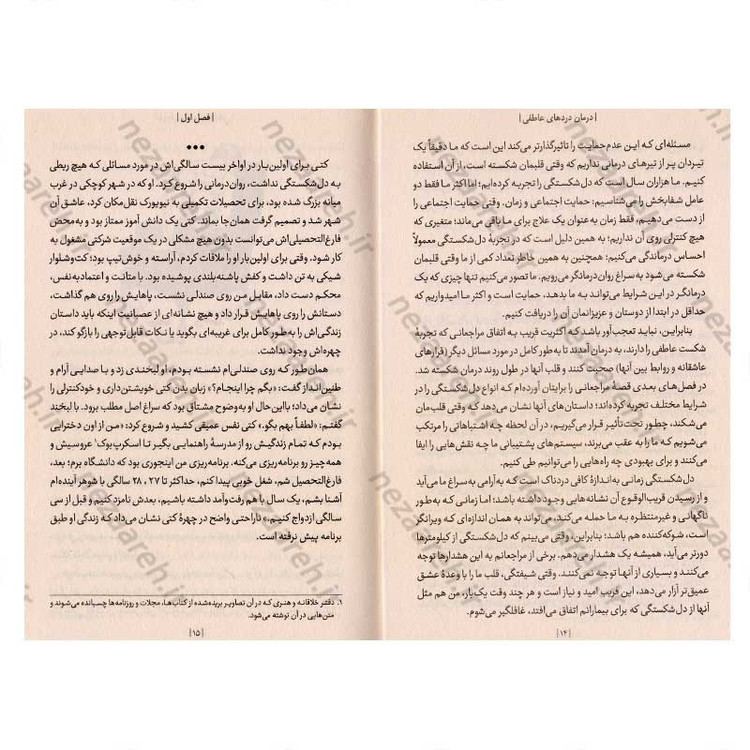 | درمان دردهای عاطفی |
مسئله‌ای که این عدم‌حمایت را تاثیرگذارتر می‌کند این است که ما دقیقاً یک
تیردان پر از تیرهای درمانی نداریم که وقتی قلبمان شکسته است، از آن استفاده
کنیم. ما هزاران سال است که دل‌شکستگی را تجربه کرده‌ایم؛ اما اکثر ما فقط دو
عامل شفابخش را می‌شناسیم: حمایت اجتماعی و زمان. وقتی حمایت اجتماعی را
از دست می‌دهیم، فقط زمان به‌عنوان یک علاج برای ما باقی می‌ماند؛ متغیری که
هیچ کنترلی روی آن نداریم؛ به همین دلیل است که در تجربهٔ دل‌شکستگی معمولاً
احساس درماندگی می‌کنیم؛ همچنین به همین خاطر تعداد کمی از ما وقتی قلبمان
شکسته می‌شود به سراغ روان‌درمانگر می‌رویم. ما تصور می‌کنیم تنها چیزی که یک
درمانگر در این شرایط می‌تواند به ما بدهد، حمایت است و اکثر ما امیدواریم که
حداقل در ابتدا از دوستان و عزیزانمان آن را دریافت کنیم.
بنابراین، نباید تعجب‌آور باشد که اکثریت قریب به اتفاق مراجعانی که تجربهٔ
شکست عاطفی را دارند، به درمان آمدند تا به‌طور کامل در مورد مسائل دیگر (قرارهای
عاشقانه و روابط بین آنها) صحبت کنند و قلب آنها در طول روند درمان شکسته شد.
در فصل‌های بعدی قصهٔ مراجعانی را برایتان آورده‌ام که انواع دل‌شکستگی را در
شرایط مختلف تجربه کرده‌اند؛ داستان‌های آنها نشان می‌دهد که وقتی قلب‌مان
می‌شکند، چطور تحت‌تأثیر قرار می‌گیریم، در آن لحظه چه اشتباهاتی را مرتکب
می‌شویم که ما را به عقب می‌برند، سیستم‌های پشتیبانی ما چه نقش‌هایی را ایفا
می‌کنند و برای بهبودی چه راه‌هایی را می‌توانیم طی کنیم.
دل‌شکستگی زمانی به‌اندازهٔ کافی دردناک است که به‌آرامی به‌سراغ ما می‌آید
و از رسیدن قریب‌الوقوع آن نشانه‌هایی وجود داشته باشد؛ اما زمانی که به‌طور
ناگهانی و غیرمنتظره به ما حمله می‌کند، می‌تواند به همان اندازه‌ای که ویرانگر
است، شوکه‌کننده هم باشد؛ بنابراین، وقتی می‌بینم که دل‌شکستگی از کیلومترها
دورتر می‌آید، همیشه یک هشدار می‌دهم. برخی از مراجعانم به این هشدارها توجه
می‌کنند و بسیاری از آنها توجه نمی‌کنند. وقتی شیفتگی، قلب ما را با وعدهٔ عشق
عمیق‌تر آزار می‌دهد، این فریب امید و نیاز است و هر چند وقت یک‌بار، من هم مثل
آنها از دل‌شکستگی که برای بیمارانم اتفاق می‌افتد، غافلگیر می‌شوم.
| ۱۴ |
| فصل اول |
●●●
کتی برای اولین‌بار در اواخر بیست سالگی‌اش در مورد مسائلی که هیچ ربطی
به دل‌شکستگی نداشت، روان‌درمانی را شروع کرد. او که در شهر کوچکی در غرب
میانه بزرگ شده بود، برای تحصیلات تکمیلی به نیویورک نقل‌مکان کرد، عاشق آن
شهر شد و تصمیم گرفت همان‌جا بماند. کتی یک دانش آموز ممتاز بود و به‌محض
فارغ‌التحصیلی‌اش می‌توانست بدون هیچ مشکلی در یک موقعیت شرکتی مشغول به
کار شود. وقتی برای اولین‌بار او را ملاقات کردم، آراسته و خوش‌تیپ بود؛ کت‌وشلوار
شیکی به تن داشت و کفش پاشنه‌بلندی پوشیده بود. با متانت و اعتمادبه‌نفس،
محکم دست داد، مقابل من روی صندلی نشست، پاهایش را روی هم گذاشت،
دستانش را روی پاهایش قرار داد و هیچ نشانه‌ای از عصبانیت اینکه باید داستان
زندگی‌اش را به‌طور کامل برای غریبه‌ای بگوید یا نکات قابل توجهی را بازگو کند، در
چهره‌اش وجود نداشت.
همان‌طور که روی صندلی‌ام نشسته بودم، او لبخندی زد و با صدایی آرام و
طنین‌انداز گفت: «بگم چرا اینجام؟» زبان بدن کتی خویشتن‌داری و خودکنترلی را
نشان می‌داد؛ بااین‌حال او به‌وضوح مشتاق بود که سراغ اصل مطلب برود. با لبخند
گفتم: «لطفاً بهم بگو.» کتی نفس عمیقی کشید و شروع کرد: «من از اون دخترایی
بودم که تمام زندگیش رو از مدرسهٔ راهنمایی بگیر تا اسکرپ‌بوک۱ عروسیش و
همه‌چیز رو برنامه‌ریزی می‌کنه. برنامه‌ریزی من اینجوری بود که دانشگاه برم؛ بعد،
فارغ‌التحصیل شم، شغل خوبی پیدا کنم، حداکثر تا ۲۷، ۲۸ سالگی با شوهر آینده‌ام
آشنا بشم، یک سال با هم رفت‌وآمد داشته باشیم، بعدش نامزد کنیم و قبل از سی
سالگی ازدواج کنیم.» ناراحتی واضح در چهرهٔ کتی نشان می‌داد که زندگی او طبق
برنامه پیش نرفته است.
۱. دفتر خلاقانه و هنری که در آن تصاویر بریده‌شده از کتاب‌ها، مجلات و روزنامه‌ها چسبانده می‌شوند و
متن‌هایی در آن نوشته می‌شود.
| ۱۵ |
nezaareh.ir